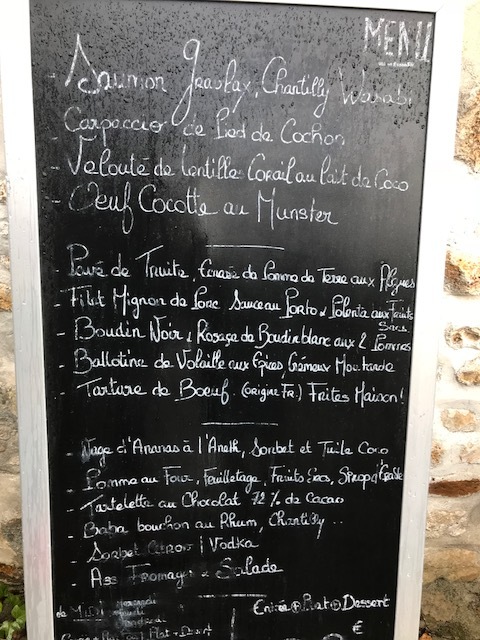 MENU
- Saumon Gravlax, Chantilly Wasabi
- Carpaccio de Pied de Cochon
- Velouté de Lentille Corail au lait de Coco
- Oeuf Cocotte au Munster
Pavé de Truite, Ecrasé de Pomme de Terre aux Algues
- Filet Mignon de Porc Sauce au Porto & Polenta aux Fruits Secs
- Boudin Noir & Rosace de Boudin blanc aux 2 Pommes
- Ballotine de Volaille aux Epices Crémeux Moutarde
- Tartare de Boeuf. (origine Fr.) Frites Maison!
- Nage d'Ananas à l'Aneth, Sorbet et Tuile Coco
- Pomme au Four, Feuilletage, Fruits Secs, Sirop d'Erable
- Tartelette au Chocolat 72% de Cacao
- Baba bouchon au Rhum, Chantilly..
- Sorbet Citron / Vodka
- Ass Fromage & Salade
de Midi Mercredi Jeudi Vendredi
Entrée + Plat + Dessert
Plat + Dessert
€